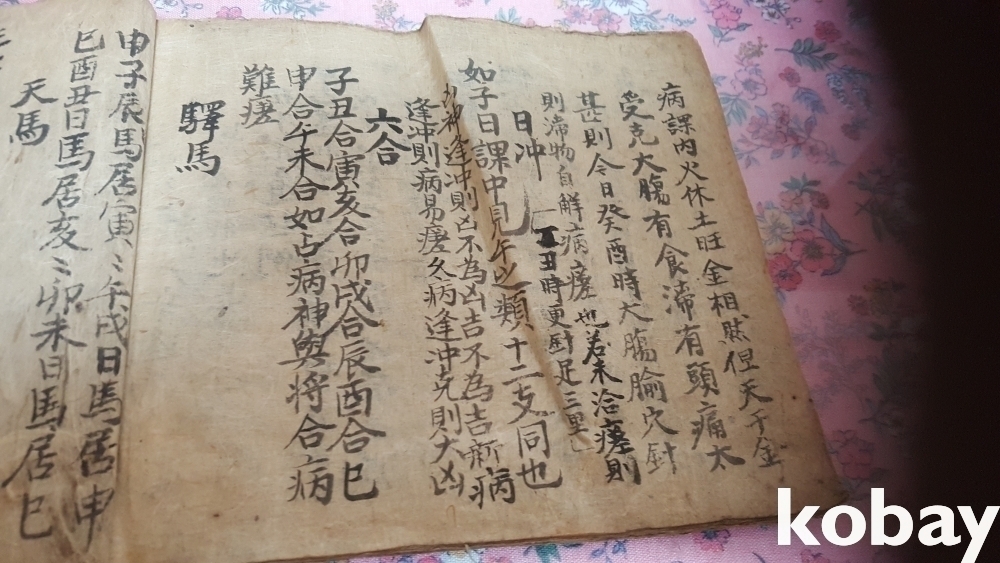 病課內火休土旺金相然但天干金
受克大腸有食滯有頭痛太
甚則今日癸酉時大腸腧穴針
則滯物自解病瘥也若未洽瘥則
丑時更針足三里
日冲
如子日課中見午之類十二支同也
神逢冲則凶不為凶吉不為吉新病
逢冲則病易瘥久病逢冲克則大凶
六合
子丑合寅亥合卯戌合辰酉合巳
申合午未合如占病神與将合病
難瘥
驛馬
申子辰馬居寅〻午戌日馬居申
巳酉丑日馬居亥〻卯未日馬居巳
天馬
kobay